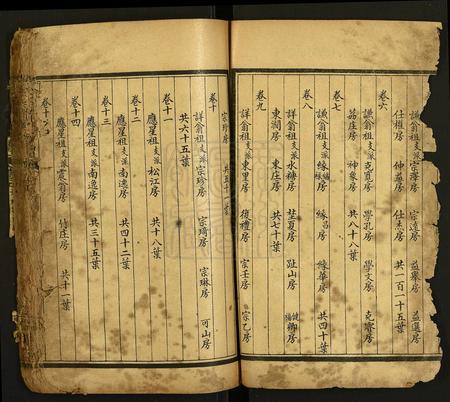 卷六
詳翁祖支派宗海房 宗遠房 益舉房 益選房
仕雅房 仲益房 仕杰房 共一百一十五葉
諴翁祖支派克寬房 學孔房 學文房 克睿房
茘庄房 神泉房 共八十八葉
卷七
諴翁祖支派 緣昌房 緣華房 共四十葉
卷八
詳翁祖支派水塘房 荳夏房 趾山房 卿房
東澗房 東庄房 共七十葉
卷九
詳翁祖支派東里房 復禮房 宗壬房 宗乙房
宗珍房 共五十一葉
卷十
詳翁祖支派宗珍房 宗琦房 宗琳房 可山房
共六十五葉
卷十一
應星祖支派松江房 共十八葉
卷十二
應星祖支派南逸房 共四十二葉
卷十三
應星祖支派南逸房 共三十五葉
卷十四
應星祖支派震翁房 竹庄房 共十一葉
卷十五